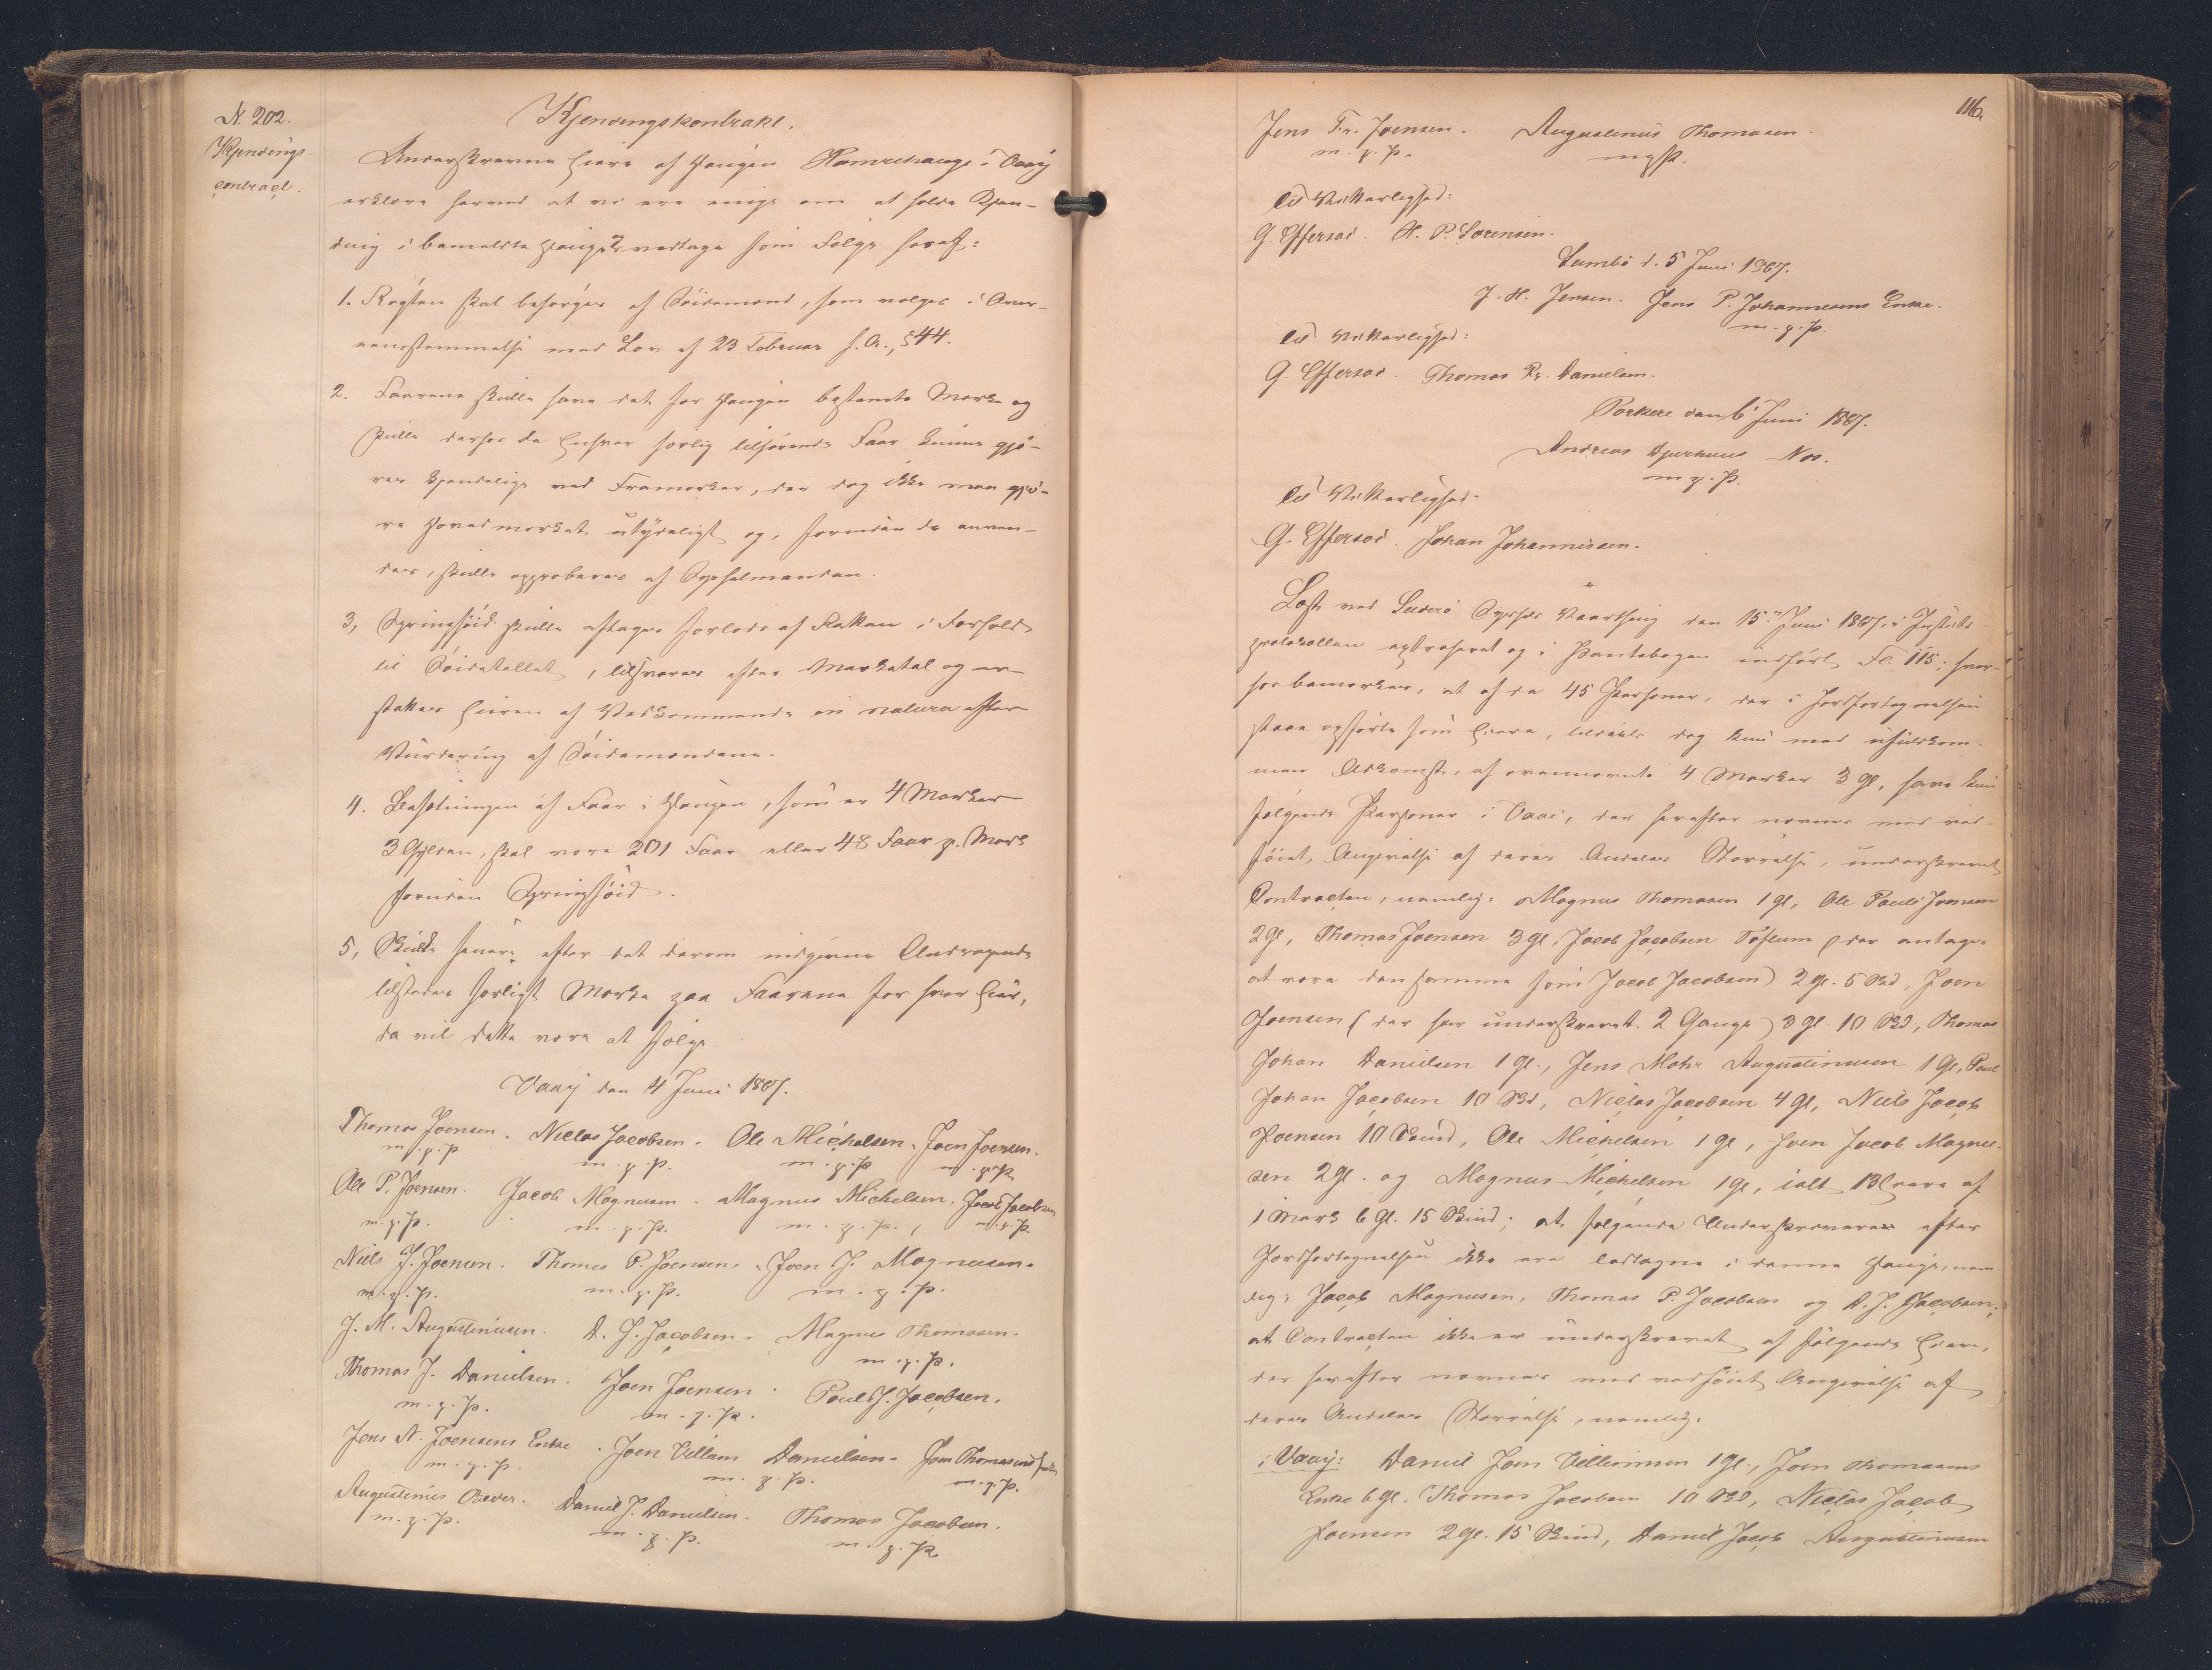 N. 202.
Kjendings-
contract.
Kjendingskontrakt.
Underskrevne Eiere af Haugen Hamrehauge i Vaag
erklære herved at vi ere enige om at holde Kjen-
ding i bemeldte Hauge og vedtage som Følge heraf:
1. Røgten skal besørges af Søidemænd, som vælges i Over-
eensstemmelse med Lov af 23 Februar f. A., § 44.
2. Faarene skulle have det for Haugen bestemte Mærke og
skulle derfor de Enhver særlig tilhørende Faar kunne gjö-
res kjendelige ved Framærker, der dog ikke maa gjö-
re Hovedmærket utydeligt og, forinden de anven-
des, skulle approberes af Sysselmanden.
3, Springsöid skulle aftages forlods af Flokken i Forhold
til Söidetallet, tilsvares efter Marketal og er-
stattes Eieren af Vedkommende in natura efter
Vurdering af Söidemændene.
4. Besætningen af Faar i Haugen, som er 4 Marker
3 Gylden, skal være 201 Faar eller 48 Faar p. Mark
foruden Springsöid.
5, Skulde senere efter det derom indgivne Andragende
tilstedes særligt Mærke paa Faarene for hver Eier,
da vil dette være at følge.
Vaag den 4 Juni 1867.
Thomas Joensen. Niclas Jacobsen. Ole Michelsen. Joen Joensen.
m. p. P. m. p. P. m. p. P. m. p. P.
Ole P. Joensen. Jacob Magnusen. Magnus Michelsen. Jacob Jacobsen
m. p. P. m. p. P. m. p. P. m. p. P.
Niels J. Joensen. Thomas P. Joensen. Joen J. Magnusen.
m. p. P. m. p. P. m. p. P.
J. M. Augustinusen. D. J. Jacobsen. Magnus Thomasen.
m. p. P.
Thomas J. Danielsen. Joen Joensen. Poul J. Jacobsen.
m. p. P. m. p. P.
Jens N. Joensens Enke. Joen Villam Danielsen. Joen Thomasens Enke
m. p. P. m. p. P. m. p. P.
Augustinus Peder. Daniel J. Danielsen. Thomas Jacobsen.
m. p. P. m. p. P. m. p. P.
116.
Jens Fr. Joensen. Augustinus Thomasen.
m. p. P. m p P.
Til Vitterlighed:
G. Effersøe. H. P. Sørensen.
Sumbö d. 5 Juni 1867.
J. H. Jensen. Jens P. Johannesens Enke.
m. p. P.
Til Vitterlighed:
G. Effersøe. Thomas Danielsen.
Porkere den 6 Juni 1867.
Andreas Djurhuus Nes.
m p. P.
Til Vitterlighed:
G. Effersøe. Johan Johannissen.
Læst ved Suderö Syssels Vaarthing den 15 Juni 1867, i Justits-
protokollen extraheret og i Pantebogen indført Fol. 115; hvor-
for bemærkes, at af de 45 Personer, der i Jordfortegnelsen
staae opførte som Eiere, tildeels dog kun med ufuldkom-
men Adkomst, af ovennævnte 4 Marker 3 Gl., have kun
følgende Personer i Vaag, der herefter nævnes med ved-
føiet Angivelse af deres Andeles Størrelse, underskrevet
Contracten, nemlig: Magnus Thomasen 1 gl, Ole Pauli Joensen
2 gl, Thomas Joensen 3 gl, Jacob Jacobsen Toftum (der antages
at være den samme som Jacob Jacobsen) 2 gl. 5 Skd, Joen
Joensen (der har underskrevet 2 Gange) 3 gl. 10 Skd, Thomas
Johan Danielsen 1 gl., Jens Mohr Augustinusen 1 Gl, Poul
Johan Jacobsen 10 Skd, Niclas Jacobsen 4 gl, Niels Jacob
Joensen 10 Skind, Ole Michelsen 1 gl, Joen Jacob Magnu-
sen 2 gl. og Magnus Michelsen 1 gl, ialt 13 Eiere af
1 Mark 6 Gl. 15 Skind; at følgende Underskrivere efter
Jordfortegnelsen ikke ere lodtagne i denne Hauge, nem-
lig: Jacob Magnusen, Thomas P. Jacobsen og D. J. Jacobsen;
at Contracten ikke er underskrevet af følgende Eiere,
der herefter nævnes med vedføiet Angivelse af
deres Andeles Størrelse, nemlig:
i Vaag: Daniel Joen Villumsen 1 gl., Joen Thomasens
Enke 6 gl. Thomas Jacobsen 10 Skd, Niclas Jacob
Joensen 2 gl. 15 Skind, Daniel Jacob Augustinusen